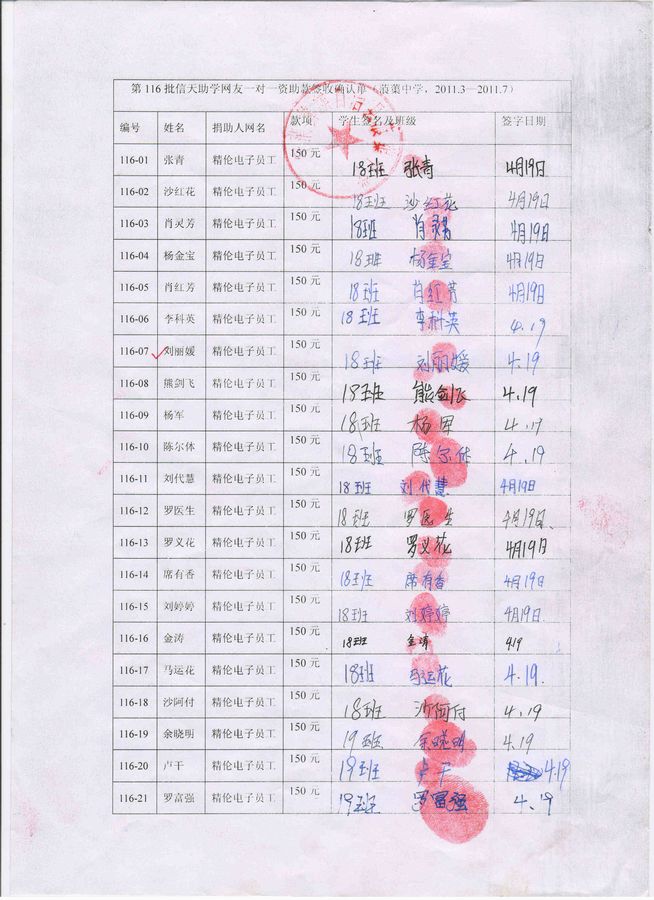 第 116 批信天助学网友一对一资助款签收确认单（菂菓中学，2011.3—2011.7）
编号 姓名 捐助人网名 款项 学生签名及班级 签字日期
116-01 张青 精伦电子员工 150 元 18班 张青 4月19日
116-02 沙红花 精伦电子员工 150 元 18班 沙红花 4月19日
116-03 肖灵芳 精伦电子员工 150 元 18班 肖灵芳 4月19日
116-04 杨金宝 精伦电子员工 150 元 18班 杨金宝 4月19日
116-05 肖红芳 精伦电子员工 150 元 18班 肖红芳 4月19日
116-06 李科英 精伦电子员工 150 元 18班 李科英 4.19
116-07 刘丽媛 精伦电子员工 150 元 18班 刘丽媛 4.19
116-08 熊剑飞 精伦电子员工 150 元 18班 熊剑飞 4.19
116-09 杨军 精伦电子员工 150 元 18班 杨军 4.19
116-10 陈尔体 精伦电子员工 150 元 18班 陈尔体 4.19
116-11 刘代慧 精伦电子员工 150 元 18班 刘代慧 4月19日
116-12 罗医生 精伦电子员工 150 元 18班 罗医生 4月19日
116-13 罗义花 精伦电子员工 150 元 18班 罗义花 4月19日
116-14 席有香 精伦电子员工 150 元 18班 席有香 4月19日
116-15 刘婷婷 精伦电子员工 150 元 18班 刘婷婷 4月19日
116-16 金涛 精伦电子员工 150 元 18班 金涛 4.19
116-17 马运花 精伦电子员工 150 元 18班 马运花 4.19.
116-18 沙阿付 精伦电子员工 150 元 18班 沙阿付 4.19
116-19 余晓明 精伦电子员工 150 元 19班 余晓明 4.19
116-20 卢干 精伦电子员工 150 元 19班 卢干 4.19
116-21 罗富强 精伦电子员工 150 元 19班 罗富强 4.19